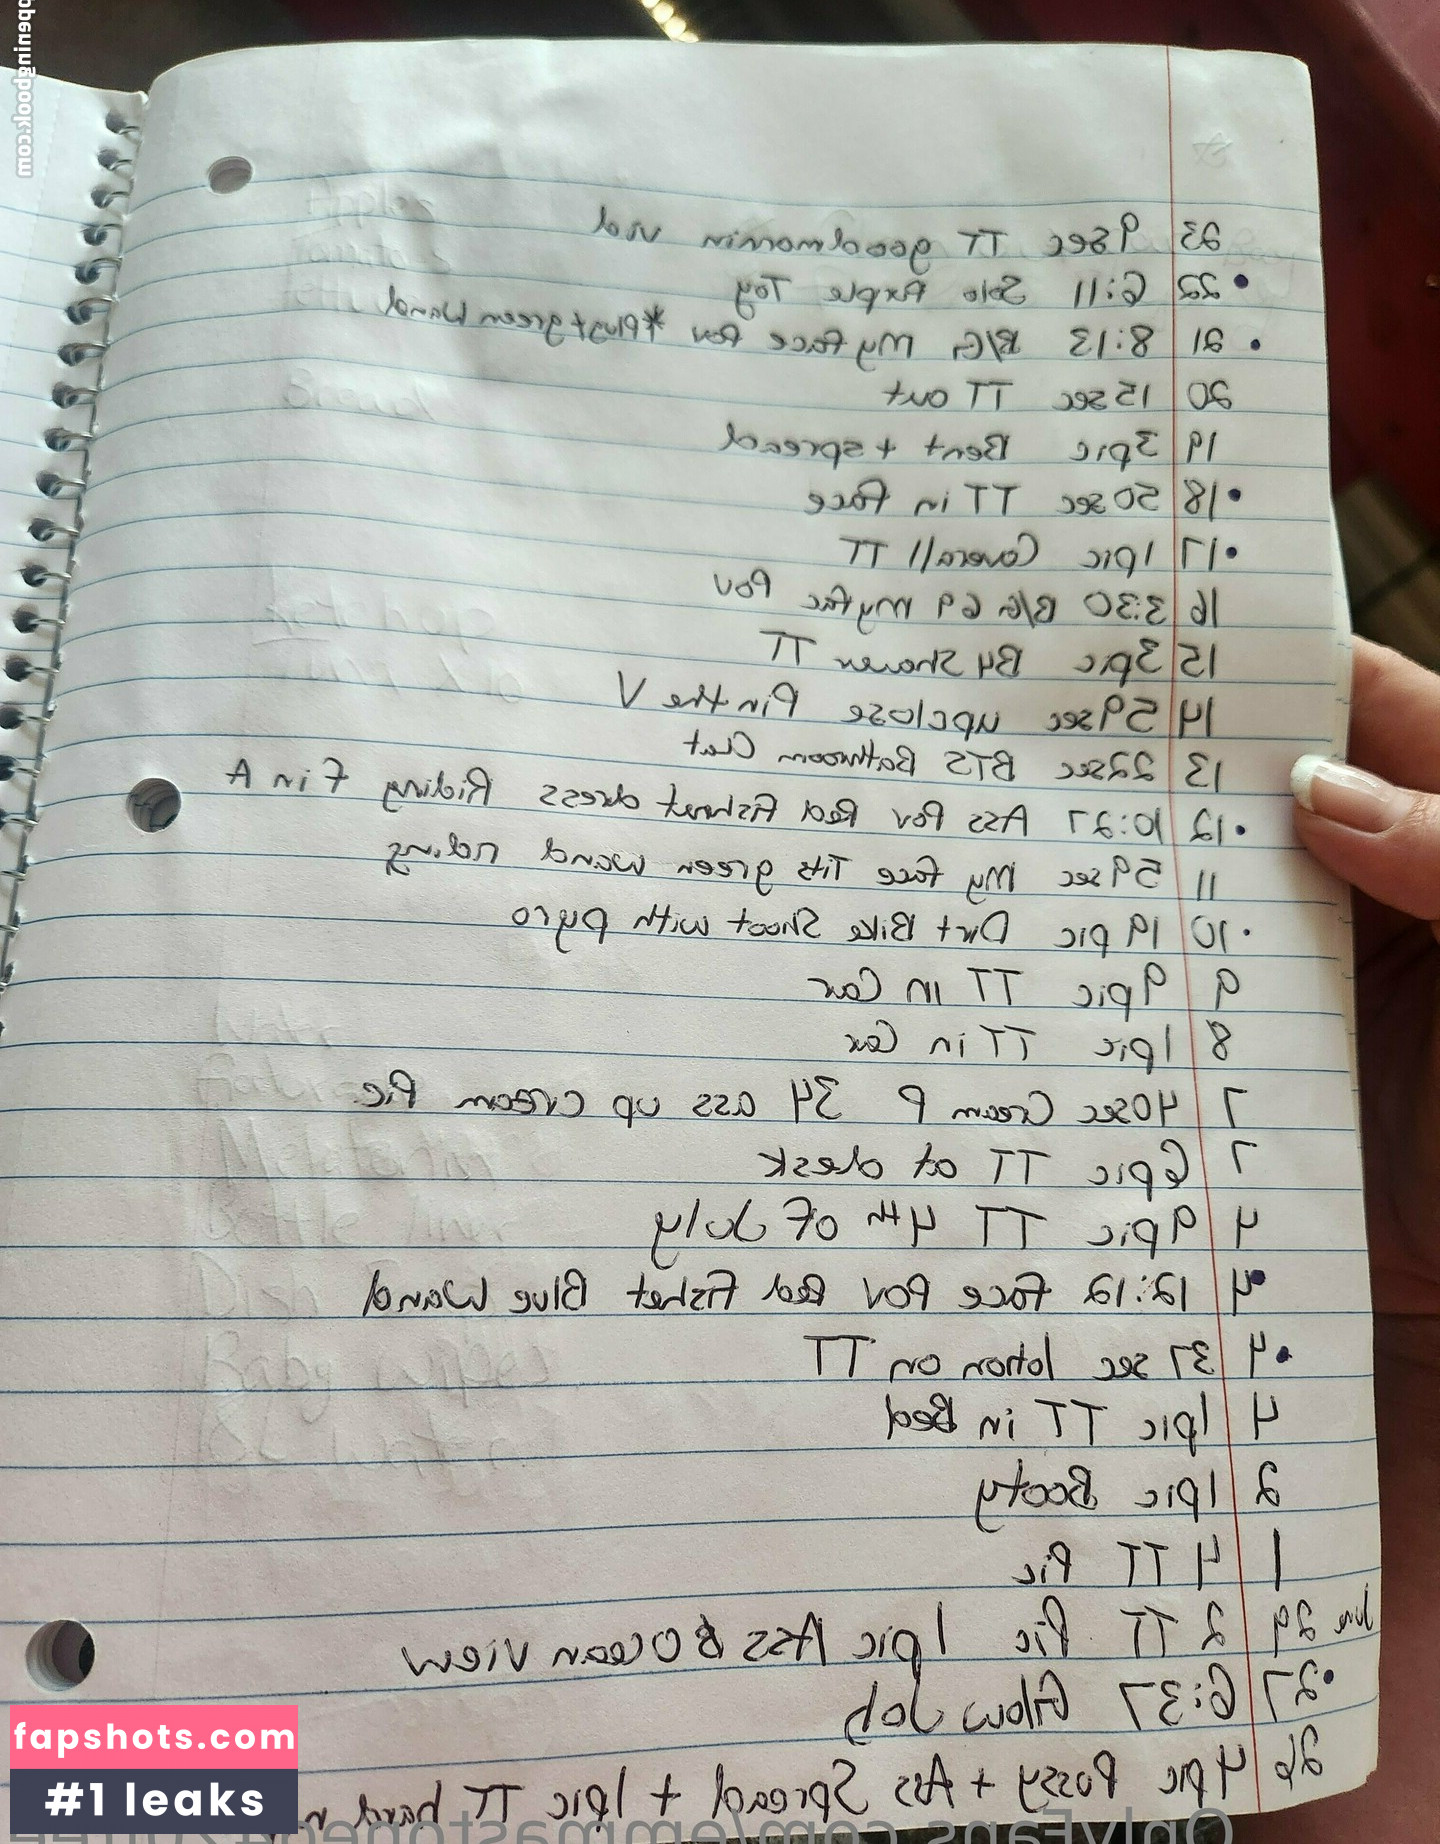 ppeningbook.com
23 9sec TT goodmornin vid
22 6:11 Solo Purple Toy
21 8:13 B/G My face Pov *Plug + green Wand
20 15sec TT out
19 3pic Bent + spread
18 50sec TT in face
17 1pic Coverall TT
16 3:30 B/G 69 my fac Pov
15 3pic B4 Shower TT
14 59sec upclose Pin the V
13 22sec BTS Bathroom Chat
12 10:27 Ass Pov Red Fishnet dress Riding F in A
11 59sec My face Tits green wand riding
10 19pic Dirt Bike Shoot with pyro
9 9pic TT in Car
8 1pic TT in Car
7 40sec Cream P 34 ass up cream Pic
7 6pic TT at desk
4 9pic TT 4th of July
4 12:12 Face POV Red Fishet Blue Wand
4 37 sec lotion on TT
4 1pic TT in Bed
2 1pic Booty
1 4 TT Pic
June 29 2 TT Pic 1pic Ass & Ocean view
27 6:37 Glow Job
26 4pic Possy + Ass Spread + 1pic TT hand
Baby wipes
fapshots.com
#1 leaks